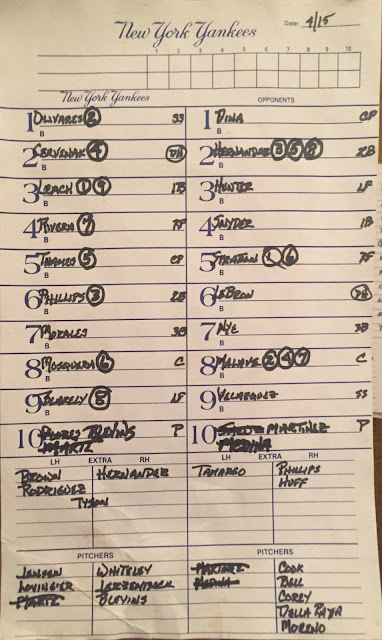 New York Yankees Date: 4/15
1 2 3 4 5 6 7 8 9 10
New York Yankees OPPONENTS
1 OLIVARES 2 SS
B
1 PINA CF
B
2 CERVENAK 4 DH
B
2 HERNANDEZ 3 5 8 2B
B
3 LEACH 1 9 1B
B
3 HUNTER LF
B
4 RIVERA 7 RF
B
4 SNYDER 1B
B
5 THAMES 5 CF
B
5 STRATTON 1 6 RF
B
6 PHILLIPS 3 2B
B
6 LEBRON DH
B
7 MORALES 3B
B
7 NYE 3B
B
8 MOSQUERA 6 C
B
8 MALAVE 2 4 7 C
B
9 BLAKELY 8 LF
B
9 VELAZQUEZ SS
B
10 BLEVINS P
MARTZ
10 MARTINEZ P
MEDINA
LH EXTRA RH
LH EXTRA RH
BROWN HERNANDEZ
RODRIGUEZ
TYSON
TAMARGO PHILLIPS
HUFF
PITCHERS
PITCHERS
JENSEN WHITELEY
LOVINGIER
MARTZ BLEVINS
MARTINEZ COOK
MEDINA BELL
COREY
MORENO